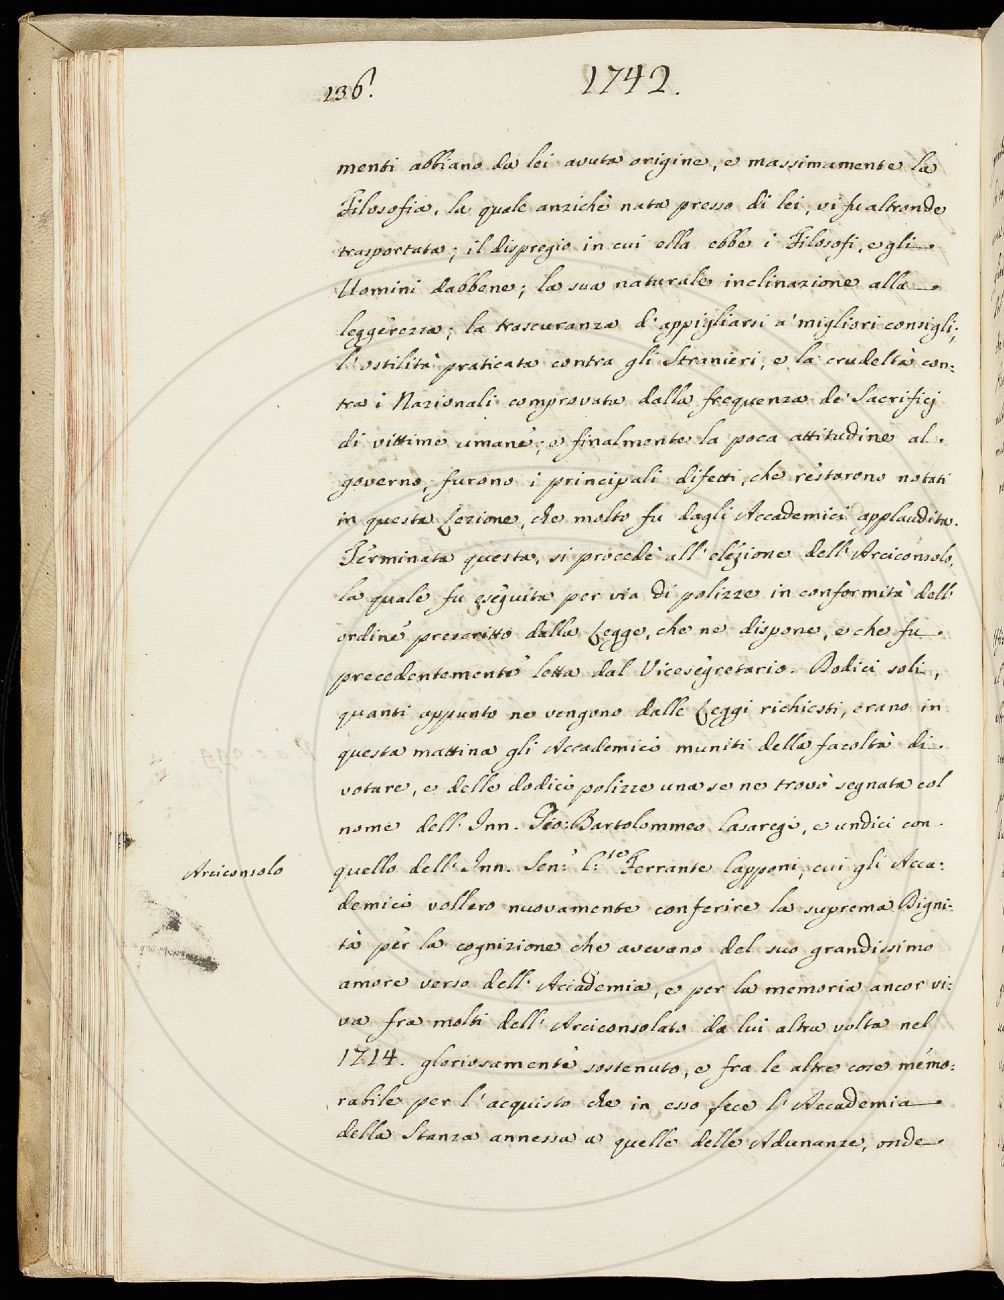 136.
1742.
menti abbiano da lei avuta origine, e massimamente la
Filosofia, la quale anzichè nata presso di lei, vi fu altronde
trasportata; il dispregio in cui ella ebbe i Filosofi, e gli
Uomini dabbene; la sua naturale inclinazione alla
leggerezza; la trascuranza d'appigliarsi a' migliori consigli;
l'ostilità praticata contra gli Stranieri, e la crudeltà con:
tra i Nazionali comprovata dalla frequenza de' Sacrifizj
di vittime umane; e finalmente la poca attitudine al
governo, furono i principali difetti, che restarono notati
in questa Lezione, che molto fu dagli Accademici applaudita.
Terminata questa, si procedè all'elezione dell'Arciconsolo,
la quale fu eseguita per via di polizze in conformità dell'
ordine prescritto dalla Legge, che ne dispone, e che fu
precedentemente letta dal Vicesegretario. Dodici soli,
quanti appunto ne vengono dalle Leggi richiesti, erano in
questa mattina gli Accademici muniti della facoltà di
votare, e delle dodici polizze una se ne trovò segnata col
nome dell'Inn. Gio: Bartolommeo Casaregi, e undici con
Arciconsolo
quello dell'Inn. Sen.e C:te Ferrante Capponi, cui gli Acca:
demici vollero nuovamente conferire la suprema Digni:
tà per la cognizione che avevano del suo grandissimo
amore verso dell'Accademia, e per la memoria ancor vi:
va fra molti dell'Arciconsolato da lui altra volta nel
1714. gloriosamente sostenuto, e fra le altre cose memo:
rabile per l'acquisto che in esso fece l'Accademia
della Stanza annessa a quelle delle Adunanze, onde